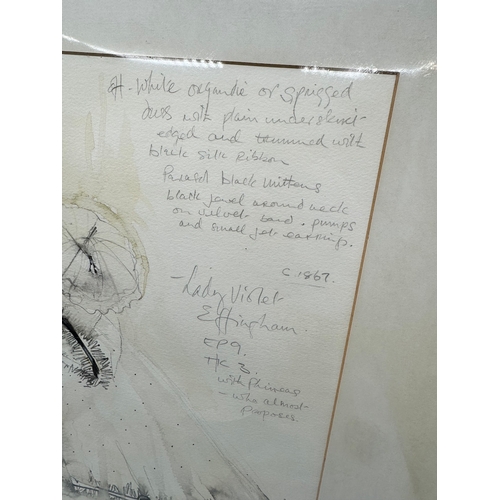 A - White organdie or sprigged
dress with plain underskirt -
edged and trimmed with
black silk ribbon
Parasol black mittens
black jewel around neck
on velvet band. pumps
and small jet earrings.
C 1867.
- Lady Violet
Effingham.
EP 9.
with Phineas
- who almost -
proposes.